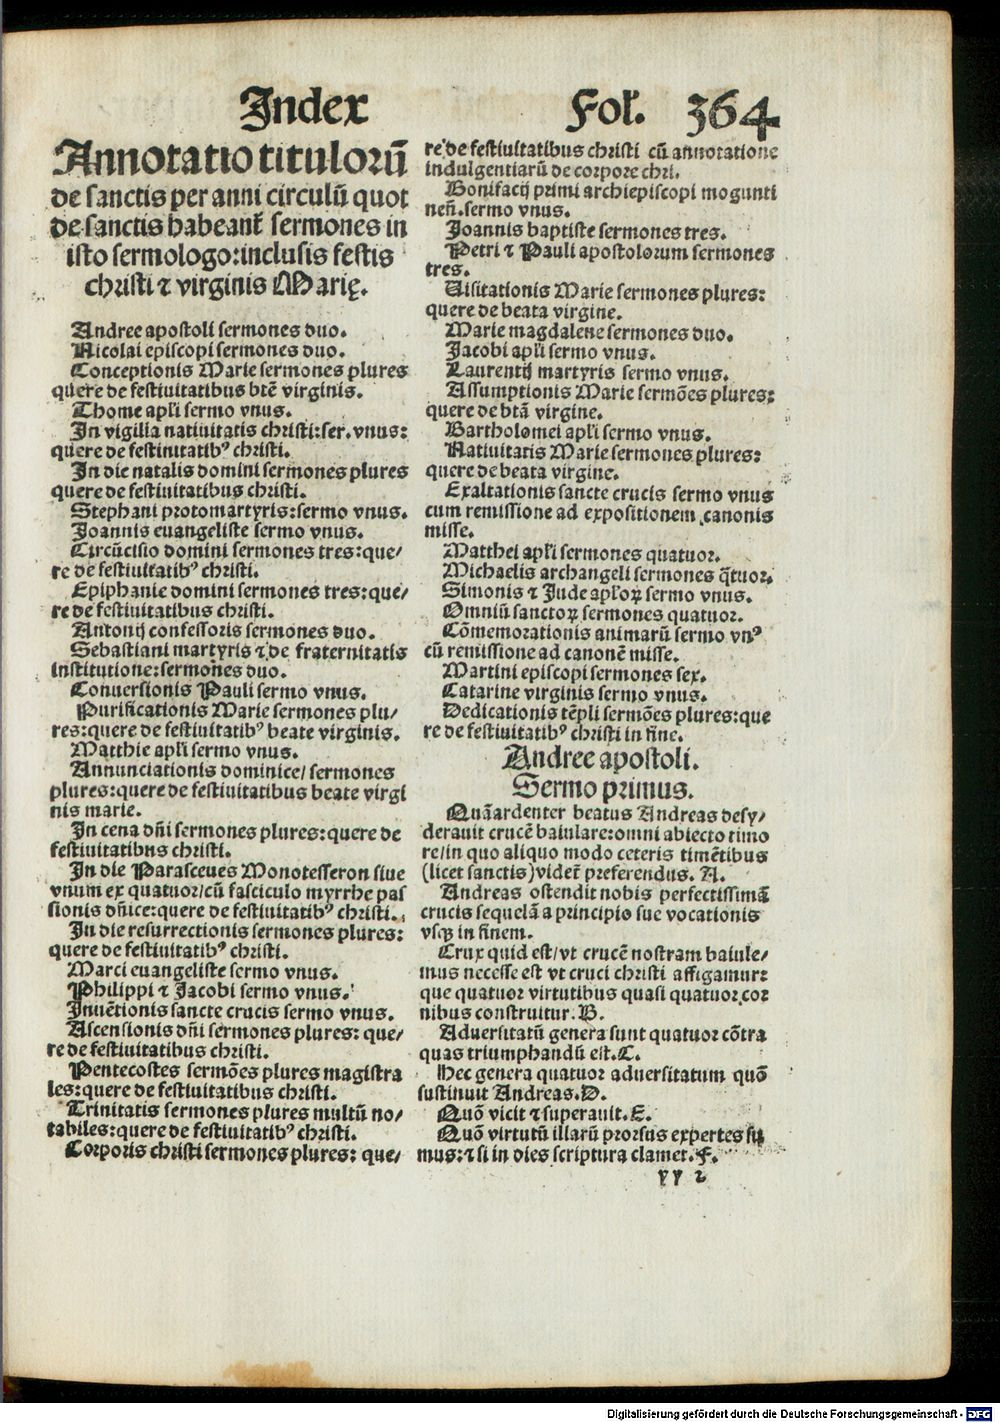 Index Fol. 364
Annotatio titulorũ
de sanctis per anni circulũ quot
de sanctis habeant̃ sermones in
isto sermologo: inclusis festis
christi ⁊ virginis Marię.
Andree apostoli sermones duo.
Nicolai episcopi sermones duo.
Conceptionis Marie sermones plures
quere de festiuitatibus btẽ virginis.
Thome apłi sermo vnus.
In vigilia natiuitatis christi: ser. vnus:
quere de festiuitatibꝰ christi.
In die natalis domini sermones plures
quere de festiuitatibus christi.
Stephani protomartyris: sermo vnus.
Joannis euangeliste sermo vnus.
Circũcisio domini sermones tres: que/
re de festiuitatibꝰ christi.
Epiphanie domini sermones tres: que/
re de festiuitatibus christi.
Antonij confessoris sermones duo.
Sebastiani martyris ⁊ de fraternitatis
institutione: sermones duo.
Conuersionis Pauli sermo vnus.
Purificationis Marie sermones plu/
res: quere de festiuitatibꝰ beate virginis.
Matthie apłi sermo vnus.
Annunciationis dominice/ sermones
plures: quere de festiuitatibus beate virgi
nis marie.
In cena dñi sermones plures: quere de
festiuitatibus christi.
In die Parasceues Monotesseron siue
vnum ex quatuor/ cũ fasciculo myrrhe pas
sionis dñice: quere de festiuitatibꝰ christi.
In die resurrectionis sermones plures:
quere de festiuitatibꝰ christi.
Marci euangeliste sermo vnus.
Philippi ⁊ Jacobi sermo vnus.
Inuẽtionis sancte crucis sermo vnus.
Ascensionis dñi sermones plures: que/
re de festiuitatibus christi.
Pentecostes sermões plures magistra
les: quere de festiuitatibus christi.
Trinitatis sermones plures multũ no/
tabiles: quere de festiuitatibꝰ christi.
Corporis christi sermones plures: que/
re de festiuitatibus christi cũ annotatione
indulgentiarũ de corpore chri.
Bonifacij primi archiepiscopi mogunti
neñ. sermo vnus.
Joannis baptiste sermones tres.
Petri ⁊ Pauli apostolorum sermones
tres.
Uisitationis Marie sermones plures:
quere de beata virgine.
Marie magdalene sermones duo.
Jacobi apłi sermo vnus.
Laurentij martyris sermo vnus.
Assumptionis Marie sermões plures:
quere de btã virgine.
Bartholomei apłi sermo vnus.
Natiuitatis Marie sermones plures:
quere de beata virgine.
Exaltationis sancte crucis sermo vnus
cum remissione ad expositionem canonis
misse.
Matthei apłi sermones quatuor.
Michaelis archangeli sermones q̃tuor.
Simonis ⁊ Jude apłoꝝ sermo vnus.
Omniũ sanctoꝝ sermones quatuor.
Cõmemorationis animarũ sermo vnꝰ
cũ remissione ad canonẽ misse.
Martini episcopi sermones sex.
Catarine virginis sermo vnus.
Dedicationis tẽpli sermões plures: que
re de festiuitatibꝰ christi in fine.
Andree apostoli.
Sermo primus.
Quã ardenter beatus Andreas desy/
derauit crucẽ baiulare: omni abiecto timo
re/ in quo aliquo modo ceteris timẽtibus
(licet sanctis) videt̃ preferendus. A.
Andreas ostendit nobis perfectissimã
crucis sequelã a principio sue vocationis
vsqꝫ in finem.
Crux quid est/ vt crucẽ nostram baiule/
mus necesse est vt cruci christi affigamur:
que quatuor virtutibus quasi quatuor cor
nibus construitur. B.
Aduersitatũ genera sunt quatuor cõtra
quas triumphandũ est. C.
Hec genera quatuor aduersitatum quõ
sustinuit Andreas. D.
Quõ vicit ⁊ superauit. E.
Quõ virtutũ illarũ prorsus expertes su
mus: ⁊ si in dies scriptura clamet. F.
yy 2
Digitalisierung gefördert durch die Deutsche Forschungsgemeinschaft - DFG